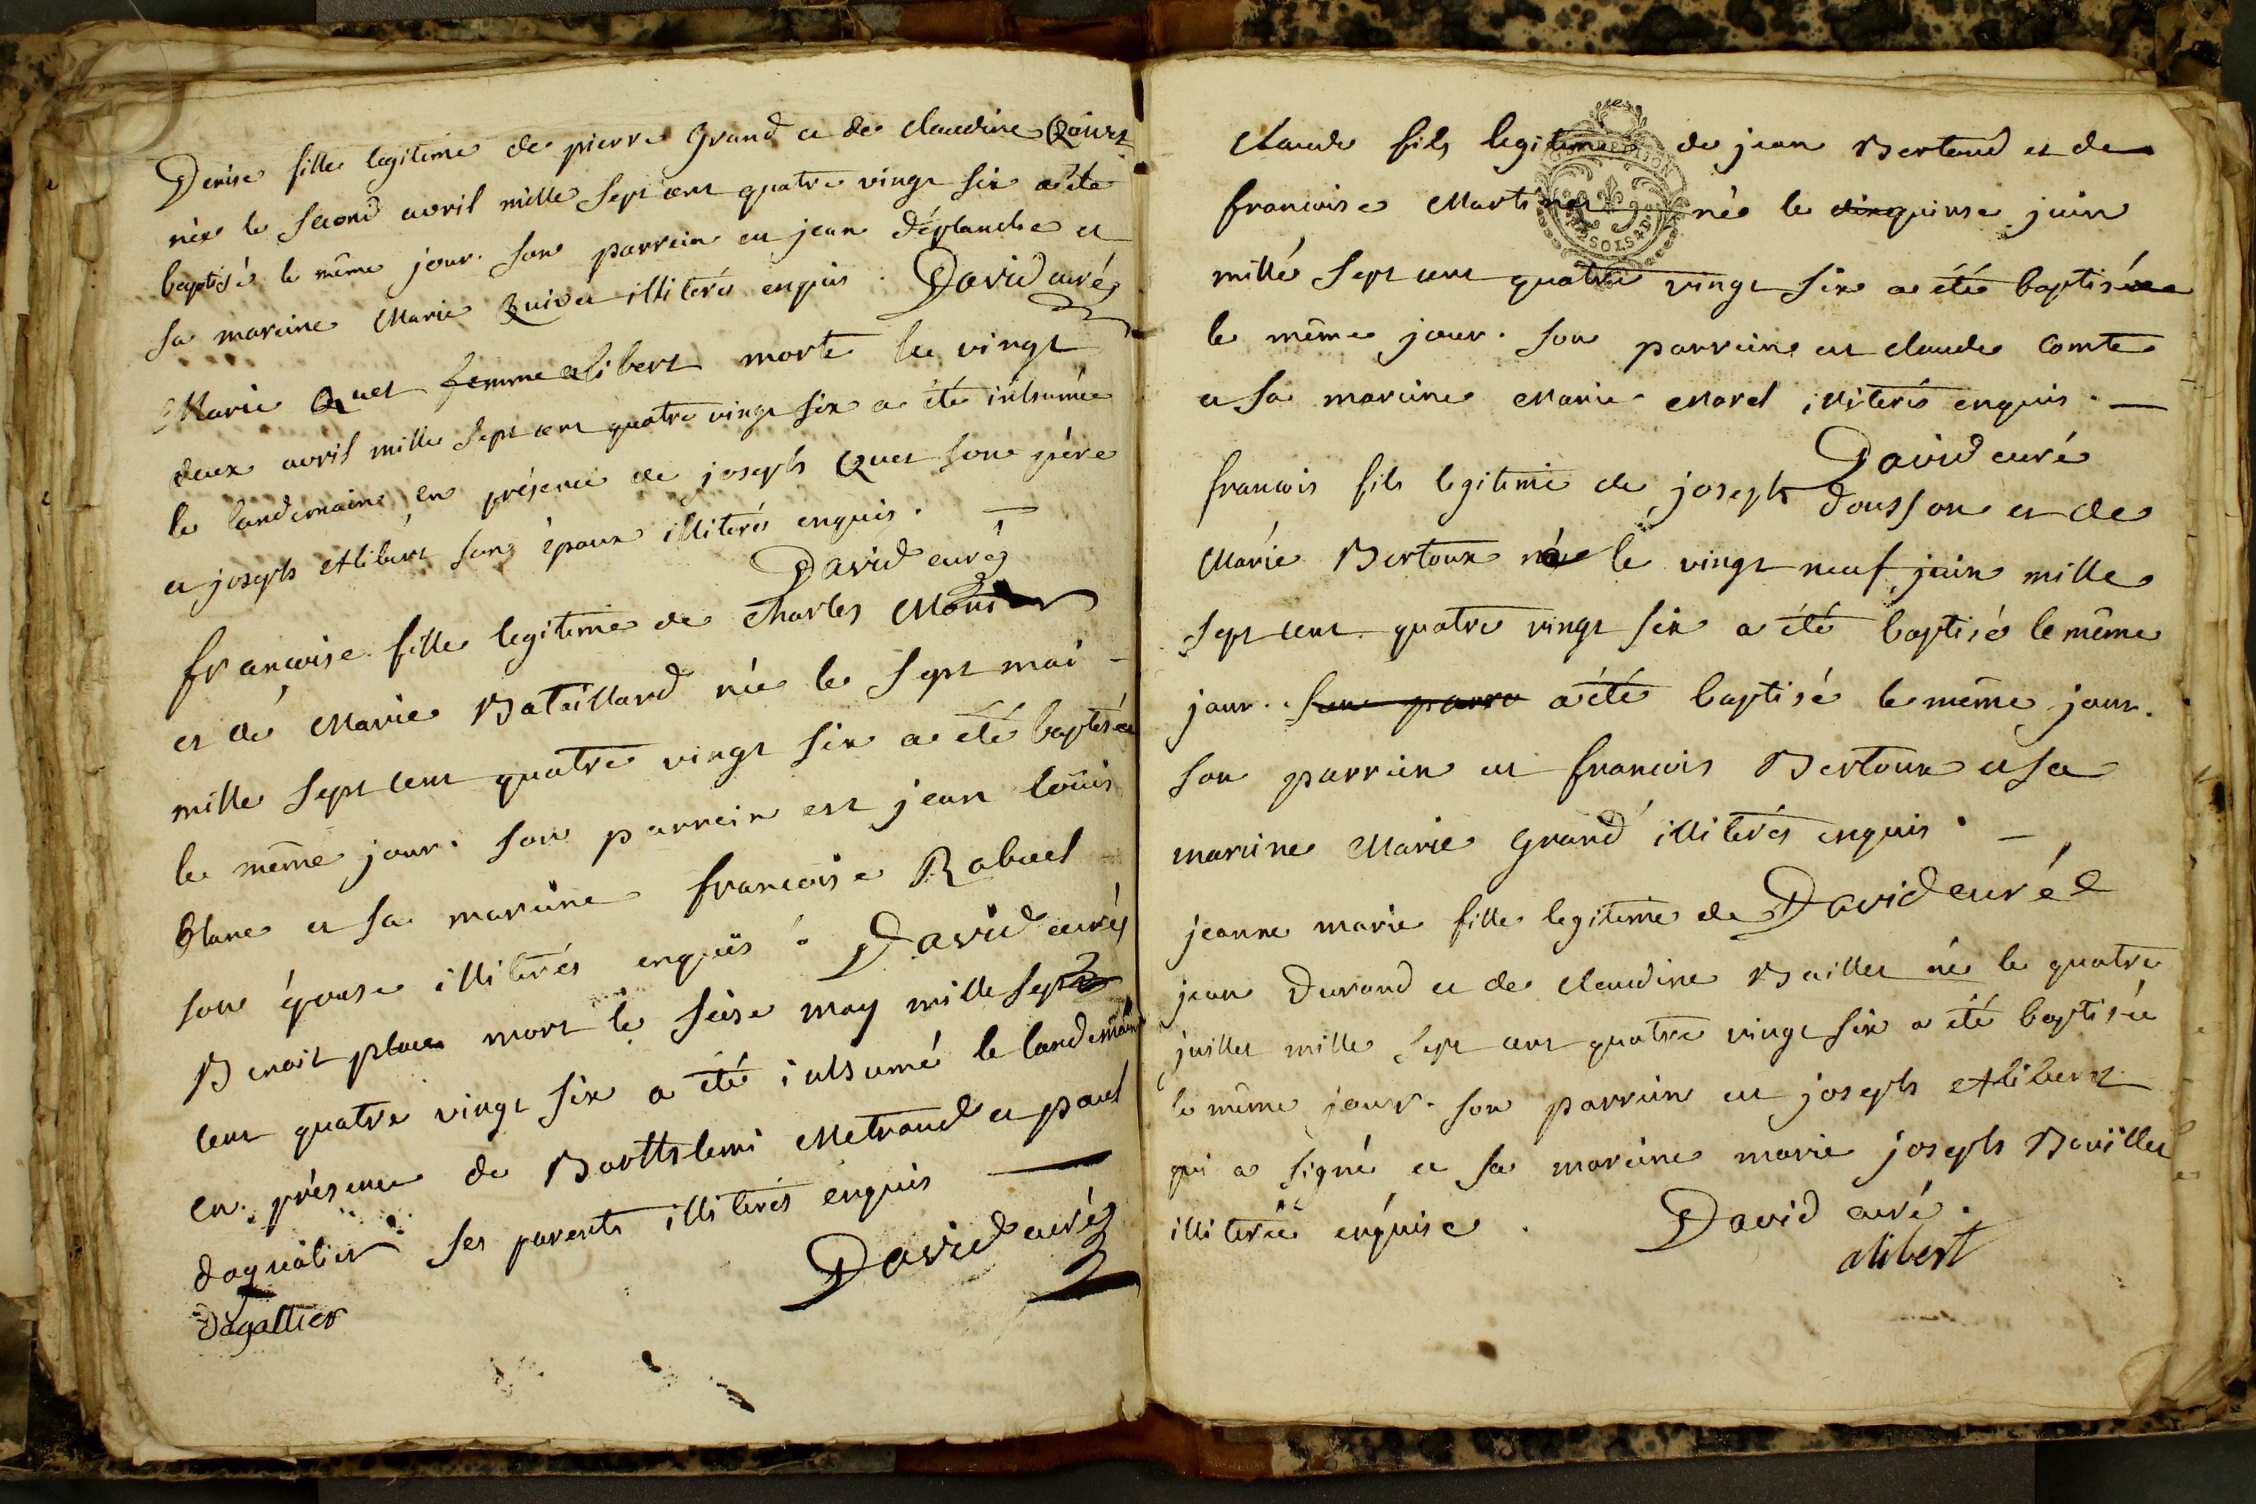 Denise fille legitime de pierre Grand et de claudine Quivet
née le second avril mille sept cent quatre vingt six a été
baptisé le même jour. son parrein est jean déplanche et
sa mareine Marie Quivet illiterés enquis. David curé
Marie Quet femme alibert morte le vingt
deux avril mille sept cent quatre vingt six a été inhumée
le landemain en présence de joseph Quet son père
et joseph Alibert son époux illiterés enquis. —
David curé
francoise fille legitime de charles
et de Marie Bataillard née le sept mai -
mille sept cent quatre vingt six a été baptisée
le même jour. son parrein est jean louis
blanc et sa mareine francoise Rabuel
son épouse illiterés enquis. David curé
Benoit place mort le seise may mille sept
cent quatre vingt six a été inhumé le landemain
en présence de Barthelemi Metraud et paul
dagualier ses parents illiterés enquis —
David curé
Dagallier
claude fils legitime de jean Bertaud et de
francoise Martinet né le quinse juin
mille sept cent quatre vingt six a été baptisé
le même jour. son parrein est claude comte
et sa mareine Marie Morel illiterés enquis. —
David curé
francois fils legitime de joseph dousson et de
Marie Bertoux né le vingt neuf juin mille
sept cent quatre vingt six a été baptisé le même
jour. son parre a été baptisé le même jour.
son parrein est francois Bertoux et sa
mareine Marie Grand illiterés enquis. —
David curé
jeanne marie fille legitime de
jean Durand et de claudine Baillet né le quatre
juillet mille sept cent quatre vingt six a été baptisée
le même jour. son parrein est joseph Alibert
qui a signé et sa mareine marie joseph Bavillet
illiterée enquise. David curé.
alibert